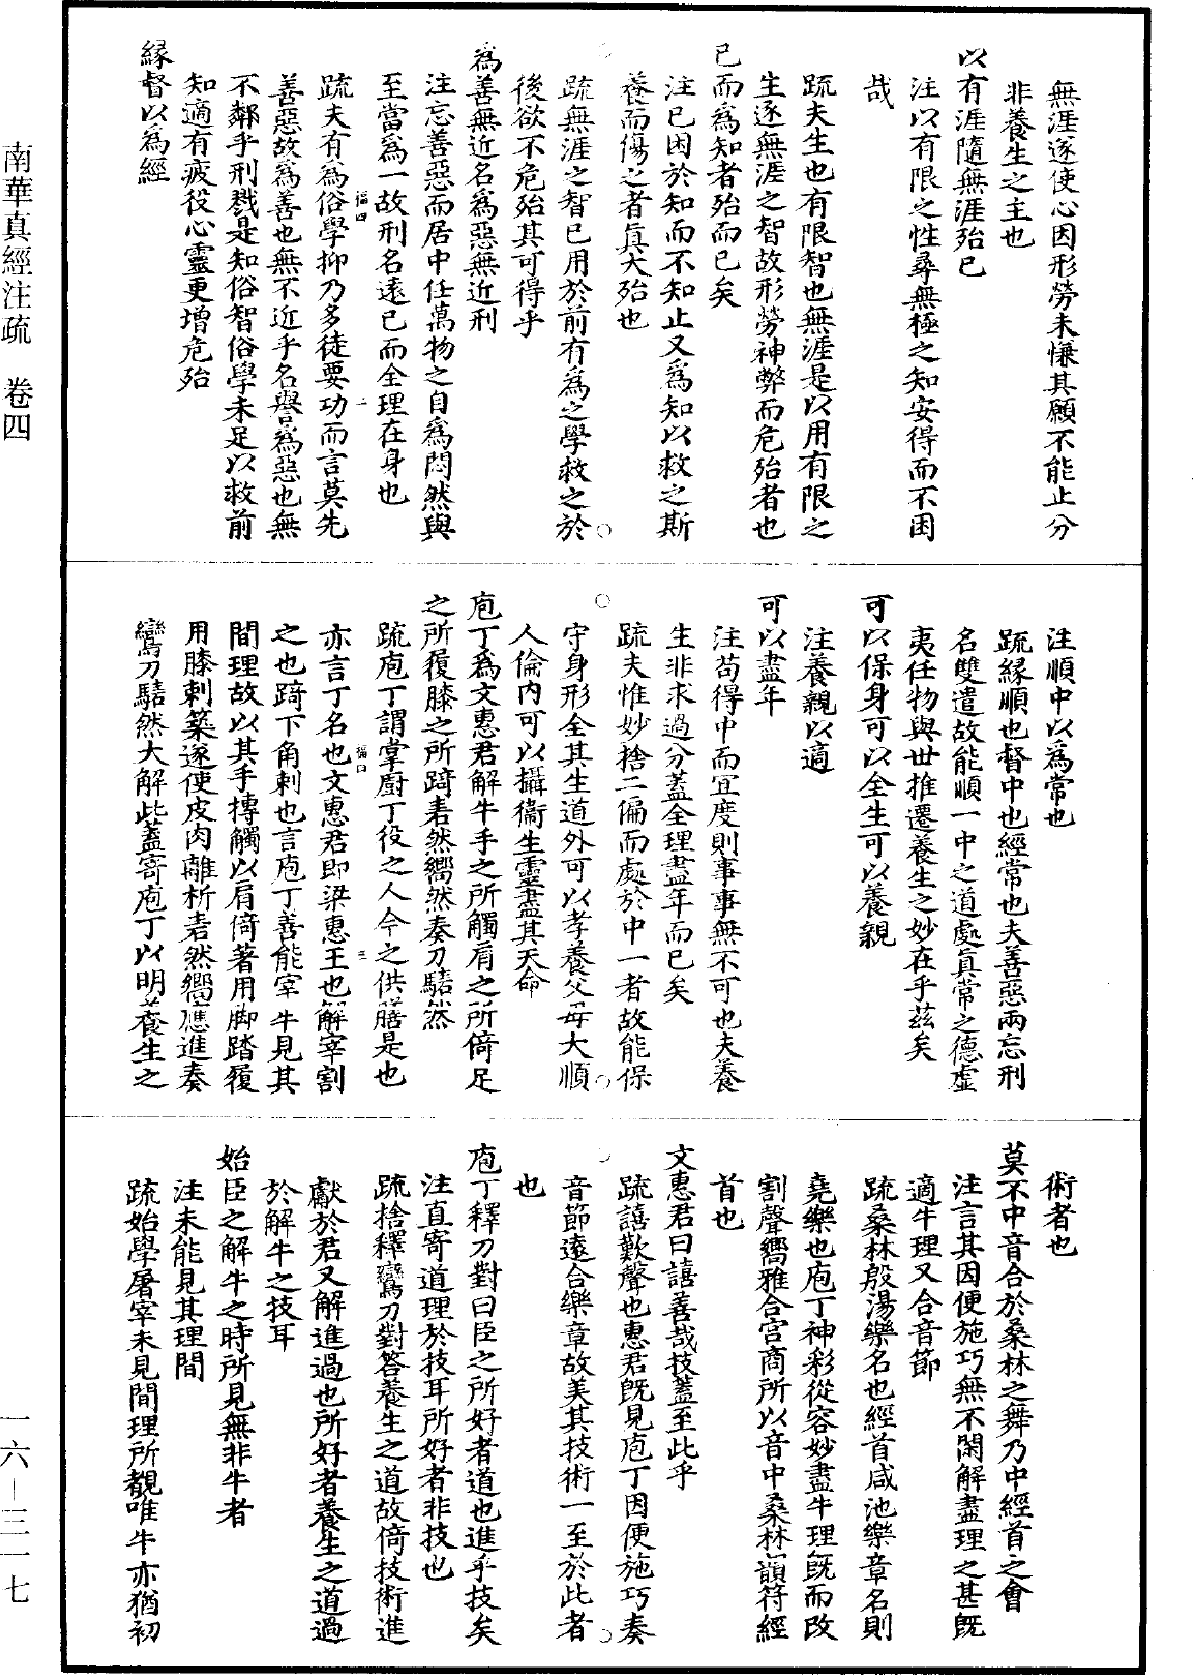 無涯遂使心困形勞未慊其願不能止分
非養生之主也
以有涯隨無涯殆已
注以有限之性尋無極之知安得而不困
哉
疏夫生也有限智也無涯是以用有限之
生逐無涯之智故形勞神弊而危殆者也
已而爲知者殆而已矣
注已困於知而不知止又爲知以救之斯
養而傷之者真大殆也
疏無涯之智已用於前有爲之學救之於
後欲不危殆其可得乎
爲善無近名爲惡無近刑
注忘善惡而居中任萬物之自爲悶然與
至當爲一故刑名遠已而全理在身也
疏夫有爲俗學抑乃多徒要功而言莫先
善惡故爲善也無不近乎名譽爲惡也無
不鄰乎刑戮是知俗智俗學未足以救前
知適有疲役心靈更增危殆
緣督以爲經
注順中以爲常也
疏緣順也督中也經常也夫善惡兩忘刑
名雙遣故能順一中之道處真常之德虛
夷任物與世推遷養生之妙在乎茲矣
可以保身可以全生可以養親
注養親以適
可以盡年
注苟得中而冝度則事事無不可也夫養
生非求過分蓋全理盡年而已矣
疏夫惟妙捨二偏而處於中一者故能保
守身形全其生道外可以孝養父母大順
人倫内可以攝衛生靈盡其天命
庖丁爲文惠君解牛手之所觸肩之所倚足
之所履膝之所踦砉然嚮然奏刀騞然
疏庖丁謂掌廚丁役之人今之供膳是也
亦言丁名也文惠君即梁惠王也解宰割
之也踦下角刺也言庖丁善能宰牛見其
間理故以其手搏觸以肩倚著用脚踏履
用膝刺築遂使皮肉離析砉然嚮應進奏
鸞刀騞然大解此蓋寄庖丁以明養生之
術者也
莫不中音合於桑林之舞乃中經首之會
注言其因便施巧無不閑解盡理之甚既
適牛理又合音節
疏桑林殷湯樂名也經首咸池樂章名則
堯樂也庖丁神彩從容妙盡牛理既而改
割聲嚮雅合宫商所以音中桑林韻符經
首也
文惠君曰譆善哉技蓋至此乎
疏譆歎聲也惠君既見庖丁因便施巧奏
音節遠合樂章故美其技術一至於此者
也
庖丁釋刀對曰臣之所好者道也進乎技矣
注直寄道理於技耳所好者非技也
疏捨釋鸞刀對答養生之道故倚技術進
獻於君又解進過也所好者養生之道過
於解牛之技耳
始臣之解牛之時所見無非牛者
注未能見其理間
疏始學屠宰未見間理所覩唯牛亦猶初
南華真經注疏　卷四
一六—三一七